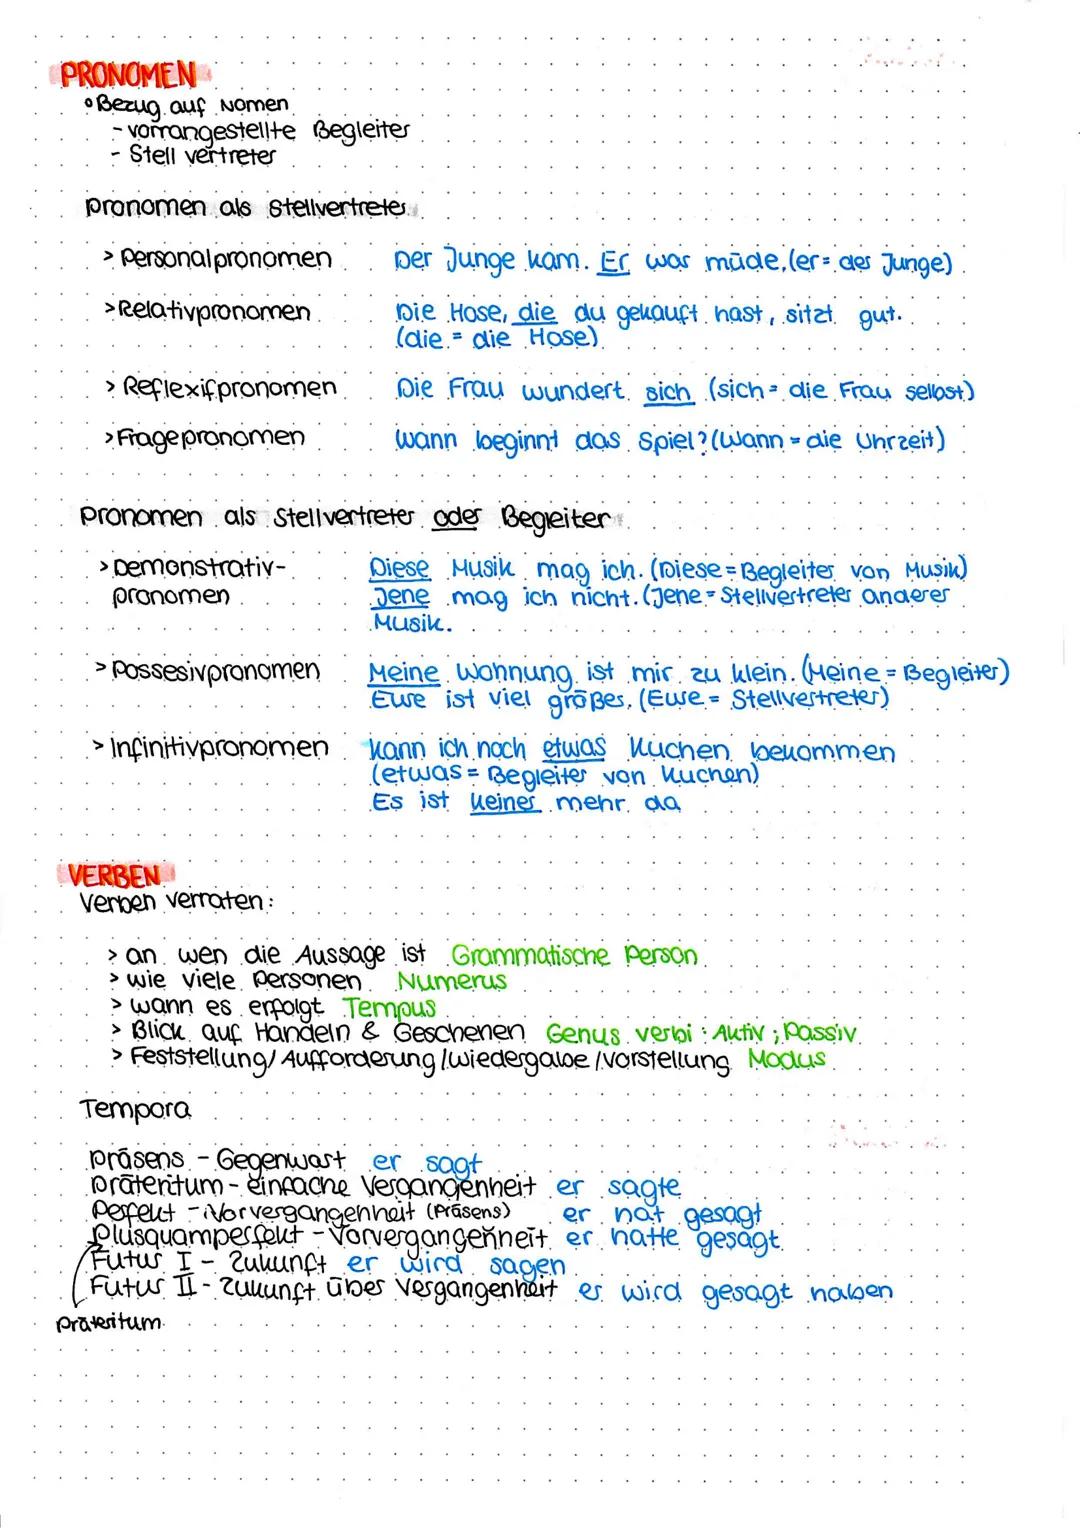 PRONOMEN
° Bezug auf Nomen
- vorrangestellte Begleiter
- Stell vertreter
pronomen als Stellvertreter
> Personalpronomen Der Junge kam. Er war müde. (er = der Junge)
> Relativpronomen Die Hose, die du gekauft hast, sitzt gut.
(die = die Hose)
> Reflexifpronomen Die Frau wundert sich (sich = die Frau selbst)
> Fragepronomen Wann beginnt das Spiel? (Wann = die Uhrzeit)
Pronomen als Stellvertreter oder Begleiter
> Demonstrativ- Diese Musik mag ich. (Diese = Begleiter von Musik)
pronomen Jene mag ich nicht. (Jene = Stellvertreter anderer
Musik.
> Possesivpronomen Meine Wohnung ist mir zu klein. (Meine = Begleiter)
Eure ist viel größer. (Eure = Stellvertreter)
> Infinitivpronomen Kann ich noch etwas Kuchen bekommen
(etwas = Begleiter von Kuchen)
Es ist keiner mehr da
VERBEN
Verben verraten:
> an wen die Aussage ist Grammatische Person
> wie viele Personen Numerus
> wann es erfolgt Tempus
> Blick auf Handeln & Geschehen Genus verbi : Aktiv ; Passiv
> Feststellung/ Aufforderung / wiedergabe / Vorstellung Modus
Tempora
Präsens - Gegenwart er sagt
Präteritum - einfache Vergangenheit er sagte
Perfekt - Vorvergangenheit (Präsens) er hat gesagt
Plusquamperfekt - Vorvergangenheit er hatte gesagt
Futur I - Zukunft er wird sagen
Futur II - Zukunft über Vergangenheit er wird gesagt haben
Präteritum